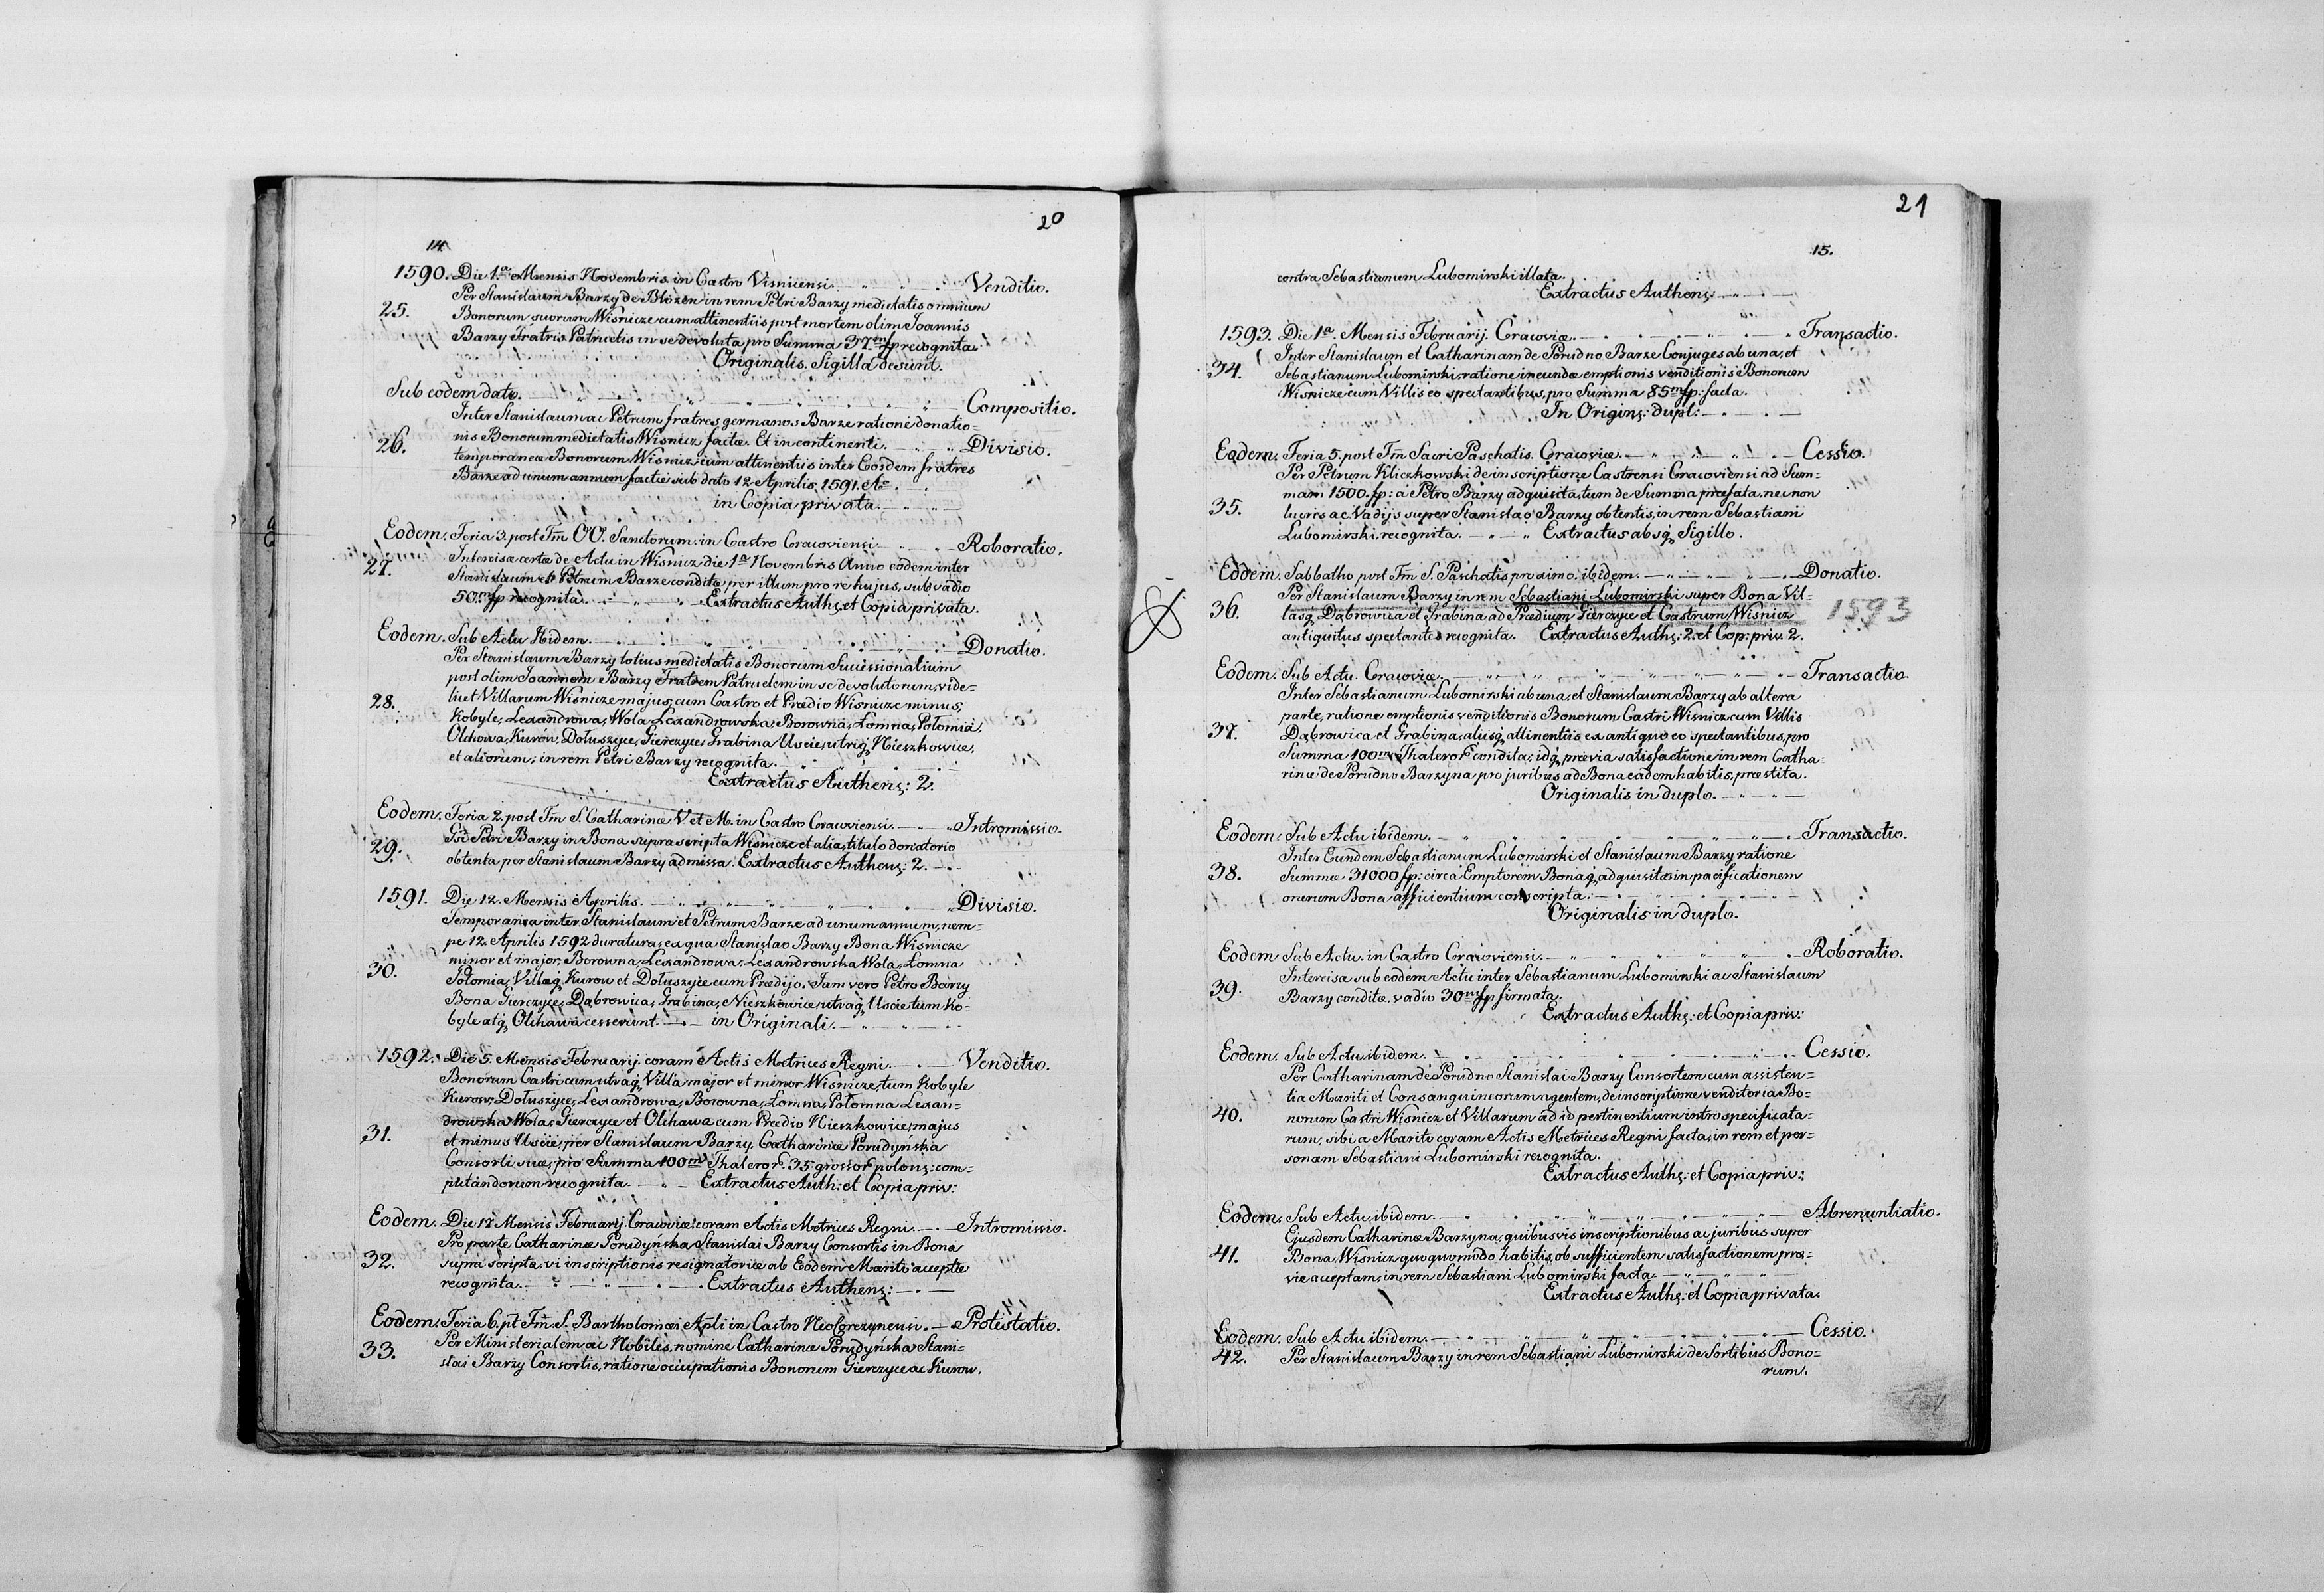 20
14
1590. Die 1.a Mensis Novembris in Castro Visnicensi. Venditio.
Per Stanislaum Barzy de Blozen in rem Petri Barzy medietatis omnium
25. Bonorum suorum Wisnicze cum attinentiis post mortem olim Joannis
Barzy Fratris Patruelis in se devoluta pro Summa 37.m fp recognita.
Originalis. Sigilla desunt.
Sub eodem dato. Compositio.
Inter Stanislaum ac Petrum fratres germanos Barze ratione donatio=
26. nis Bonorum medietatis Wisnicz factæ. Et in continenti. Divisio.
temporanea Bonorum Wisnicz cum attinentiis inter Eosdem fratres
Barze ad unum annum factæ sub dato 12 Aprilis 1591.
in Copia privata.
Eodem. Feria 3. post Fm OO. Sanctorum in Castro Cracoviensi Roboratio.
27. Intercisa certæ de Actu in Wisnicz die 1a Novembris Anno eodem inter
Stanislaum et Petrum Barze condita per illum pro re hujus, sub vadio
50.m fp recognita. Extractus Auth: et Copia privata.
Eodem. Sub Actu Ibidem. Donatio.
Per Stanislaum Barzy totius medietatis Bonorum Successionalium
post olim Joannem Barzy Fratrem Patruelem in se devolutorum, vide=
28. licet Villarum Wisnicze majus, cum Castro et Prædio Wisnicze minus,
Kobyle, Lexandrowa, Wola Lexandrowska, Borowna, Łomna, Połomia,
Olchowa, Kurów, Dołuszyce, Gierczyce, Grabina Uscie, utriq, Nieszkowice,
et aliorum, in rem Petri Barzy recognita.
Extractus Authen: 2.
Eodem. Feria 2. post Fm S. Catharinæ V et M. in Castro Cracoviensi. Intromissio.
29. Gsi Petri Barzy in Bona supra scripta Wisnicze et alia, titulo donatorio
obtenta per Stanislaum Barzy admissa. Extractus Authen: 2.
1591. Die 12. Mensis Aprilis. Divisio.
Temporanea inter Stanislaum et Petrum Barze ad unum annum, nem=
pe 12. Aprilis 1592 duratura, ex qua Stanislao Barzy Bona Wisnicze
30. minor et major, Borowna, Lexandrowa, Lexandrowska Wola, Łomna
Połomia, Villaq, Kurow et Dołuszyce cum Prædijo. Jam vero Petro Barzy
Bona Gierczyce, Dąbrowica, Grabina, Nieszkowice utraq, Uscie tum Ko=
byle atq, Olchawa cesserunt. in Originali.
1592. Die 5. Mensis Februarij coram Actis Metrices Regni. Venditio.
Bonorum Castri cum utraq, Villa major et minor Wisnicze, tum Kobyle
Kurow, Dołuszyce, Lexandrowa, Borowna, Łomna, Połomna Lexan=
31. drowska Wola, Gierczyce et Olchawa cum Prædio Nieszkowice, majus
et minus Uscie, per Stanislaum Barzy, Catharinæ Porudyńska
Consorti suæ, pro Summa 100.m Thaleror. 35 grossor polon: com=
putandorum recognita. Extractus Auth: et Copia priv:
Eodem. Die 17 Mensis Februarij. Cracoviæ coram Actis Metrices Regni. Intromissio.
Pro parte Catharinæ Porudyńska Stanislai Barzy Consortis in Bona
32. supra scripta, vi inscriptionis resignatoriæ ab Eodem Marito acceptæ
recognita. Extractus Authen:
Eodem. Feria 6. pt Fm. S. Bartholomæi Apli in Castro NeoCorczynensi. Protestatio.
33. Per Ministerialem ac Nobiles, nomine Catharinæ Porudyńska Stani=
slai Barzy Consortis, ratione occupationis Bonorum Gierczyce ac Kurow.
21
15.
contra Sebastianum Lubomirski illata.
Extractus Authen:
1593. Die 1a. Mensis Februarij. Cracoviæ. Transactio.
Inter Stanislaum et Catharinam de Porudno Barze Conjuges ab una, et
34. Sebastianum Lubomirski, ratione ineundæ emptionis venditionis Bonorum
Wisnicze cum Villis eo spectantibus, pro Summa 85.m fp: facta.
In Origin: dupl:
Eodem. Feria 5. post Fm Sacri Paschatis. Cracoviæ. Cessio.
Per Petrum Kliczkowski de inscriptione Castrensi Cracoviensi ad Sum=
mam 1500. fp: a Petro Barzy adquisita, tum de Summa præfata, nec non
35. lucris ac Vadijs super Stanislao Barzy obtentis, in rem Sebastiani
Lubomirski, recognita. Extractus absq, Sigillo.
Eodem. Sabbatho post Fm S. Paschatis proximo. ibidem. Donatio.
Per Stanislaum Barzy in rem Sebastiani Lubomirski super Bona Vil=
36. lasq, Dąbrowica et Grabina ad Prædium Gierczyce et Castrum Wisnicz 1593
antiquitus spectantes recognita. Extractus Auth: 2. et Cop: priv. 2.
Eodem. Sub Actu. Cracoviæ. Transactio
Inter Sebastianum Lubomirski ab una, et Stanislaum Barzy ab altera
parte, ratione emptionis venditionis Bonorum Castri Wisnicz cum Villis
37. Dąbrowica et Grabina, aliisq, attinentiis ex antiquo eo spectantibus, pro
Summa 100.m Thaleror condita, idq, prævia satisfactione in rem Catha=
rinæ de Porudno Barzyna pro juribus ad Bona eadem habitis, præstita.
Originalis in duplo.
Eodem. Sub Actu ibidem. Transactio.
Inter Eundem Sebastianum Lubomirski et Stanislaum Barzy ratione
38. Summæ 31000 fp: circa Emptorem Bonaq, adquisita in pacificationem
onerum Bona afficientium conscripta.
Originalis in duplo.
Eodem Sub Actu. in Castro Cracoviensi. Roboratio.
Intercisa sub eodem Actu inter Sebastianum Lubomirski ac Stanislaum
39. Barzy conditæ, vadio 30.m fp firmata.
Extractus Auth: et Copia priv:
Eodem. Sub Actu ibidem. Cessio.
Per Catharinam de Porudno Stanislai Barzy Consortem cum assisten=
tia Mariti et Consanguineorum agentem, de inscriptione venditoria Bo=
40. norum Castri Wisnicz et Villarum ad id pertinentium intro specificata=
rum, sibi a Marito coram Actis Metrices Regni facta, in rem et per=
sonam Sebastiani Lubomirski recognita.
Extractus Auth: et Copia priv:
Eodem. Sub Actu ibidem. Abrenuntiatio.
Ejusdem Catharinæ Barzyna, quibusvis inscriptionibus ac juribus super
41. Bona Wisnicz quoquomodo habitis, ob sufficientem satisfactionem præ=
vie acceptam, in rem Sebastiani Lubomirski facta.
Extractus Auth: et Copia privata.
Eodem. Sub Actu ibidem. Cessio.
42. Per Stanislaum Barzy in rem Sebastiani Lubomirski de Sortibus Bono=
rum.